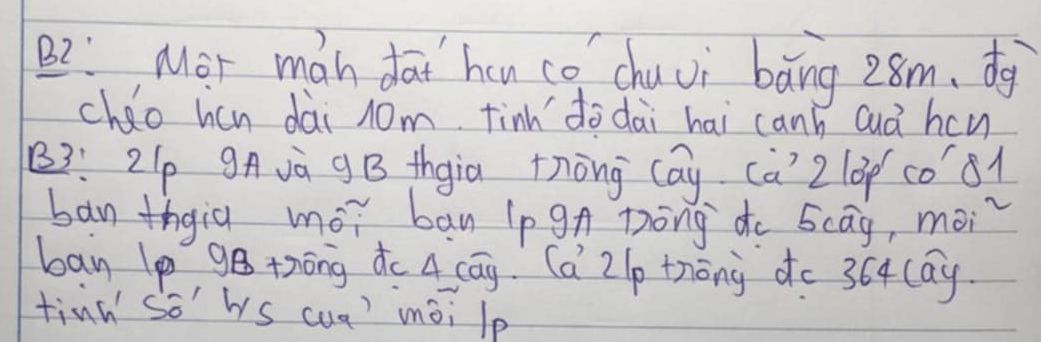 B2: Một mảh đất hcn có chu vi bằng 28m. đg
chéo hcn dài 10m. tính độ dài hai cạnh của hcn
B3: 2 lp 9A và 9B thgia trồng cây. Cả 2 lớp có 81
bạn thgia mỗi bạn lp 9A trồng đc 5 cây, mỗi
bạn lp 9B trồng đc 4 cây. Cả 2 lp trồng đc 364 cây.
tính số h/s của mỗi lp